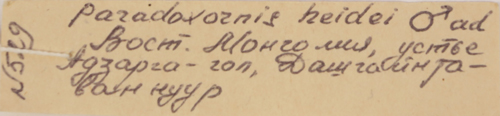 Paradoxornis heidei ♂ ad
Вост. Монголия, устье
Адзарга-гол, Дашгаинта-
ван нуур